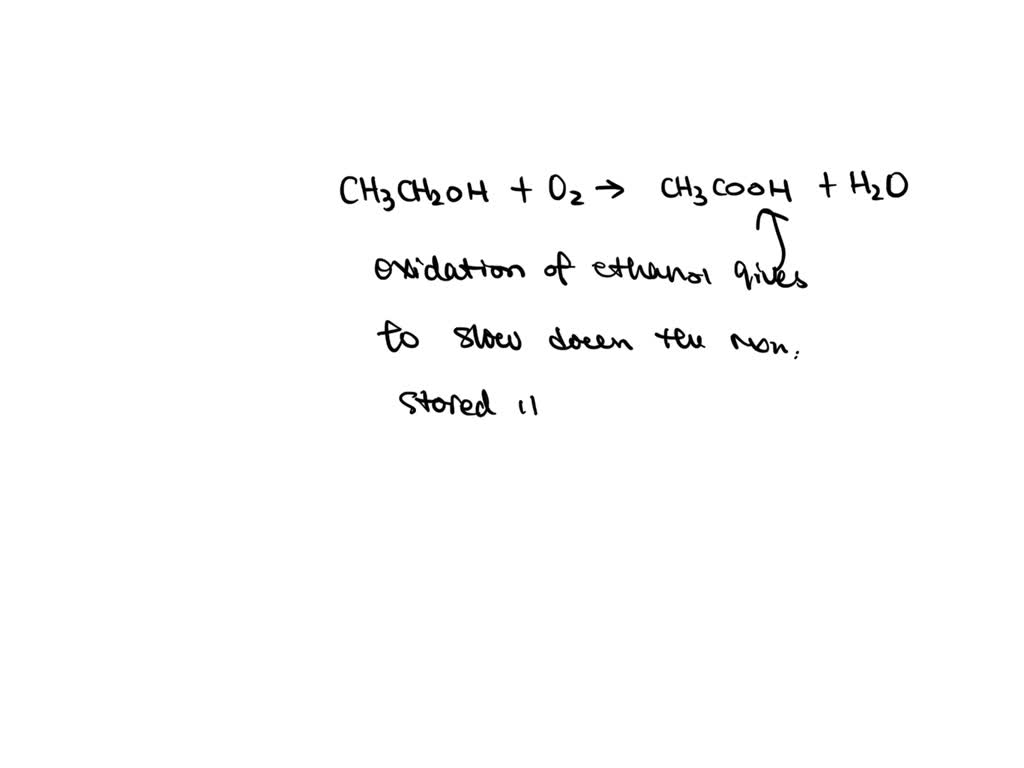 CH₃CH₂OH + O₂ → CH₃COOH + H₂O
oxidation of ethanol gives
to slow down the rxn.
stored